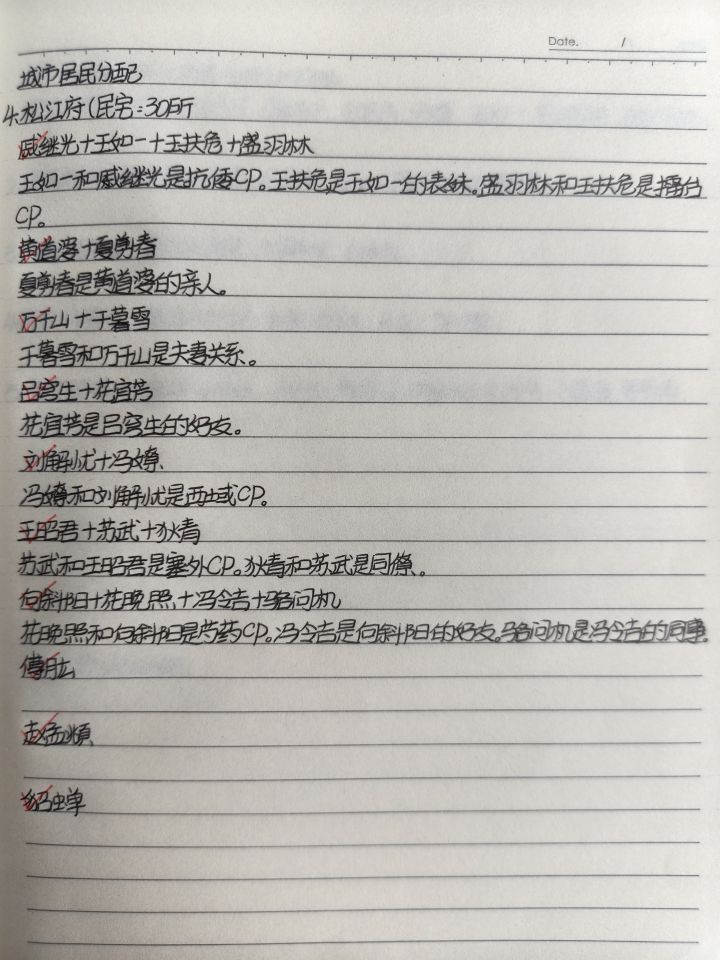 Date. /
城市居民分配
4.松江府(民宅:30所
戚继光+王如一+王扶危+盛羽林
王如一和戚继光是抗倭CP。王扶危是王如一的表妹。盛羽林和王扶危是擂台
CP。
黄道婆+夏剪春
夏剪春是黄道婆的亲人。
万千山+于暮雪
于暮雪和万千山是夫妻关系。
吕穹生+花宜芳
花宜芳是吕穹生的好友。
刘解忧+冯嫽
冯嫽和刘解忧是西域CP。
王昭君+苏武+狄青
苏武和王昭君是塞外CP。狄青和苏武是同僚。
向斜阳+花晚照+冯令吉+骆问机
花晚照和向斜阳是芍药CP。冯令吉是向斜阳的好友。骆问机是冯令吉的同事。
傅肱
赵孟頫
貂蝉